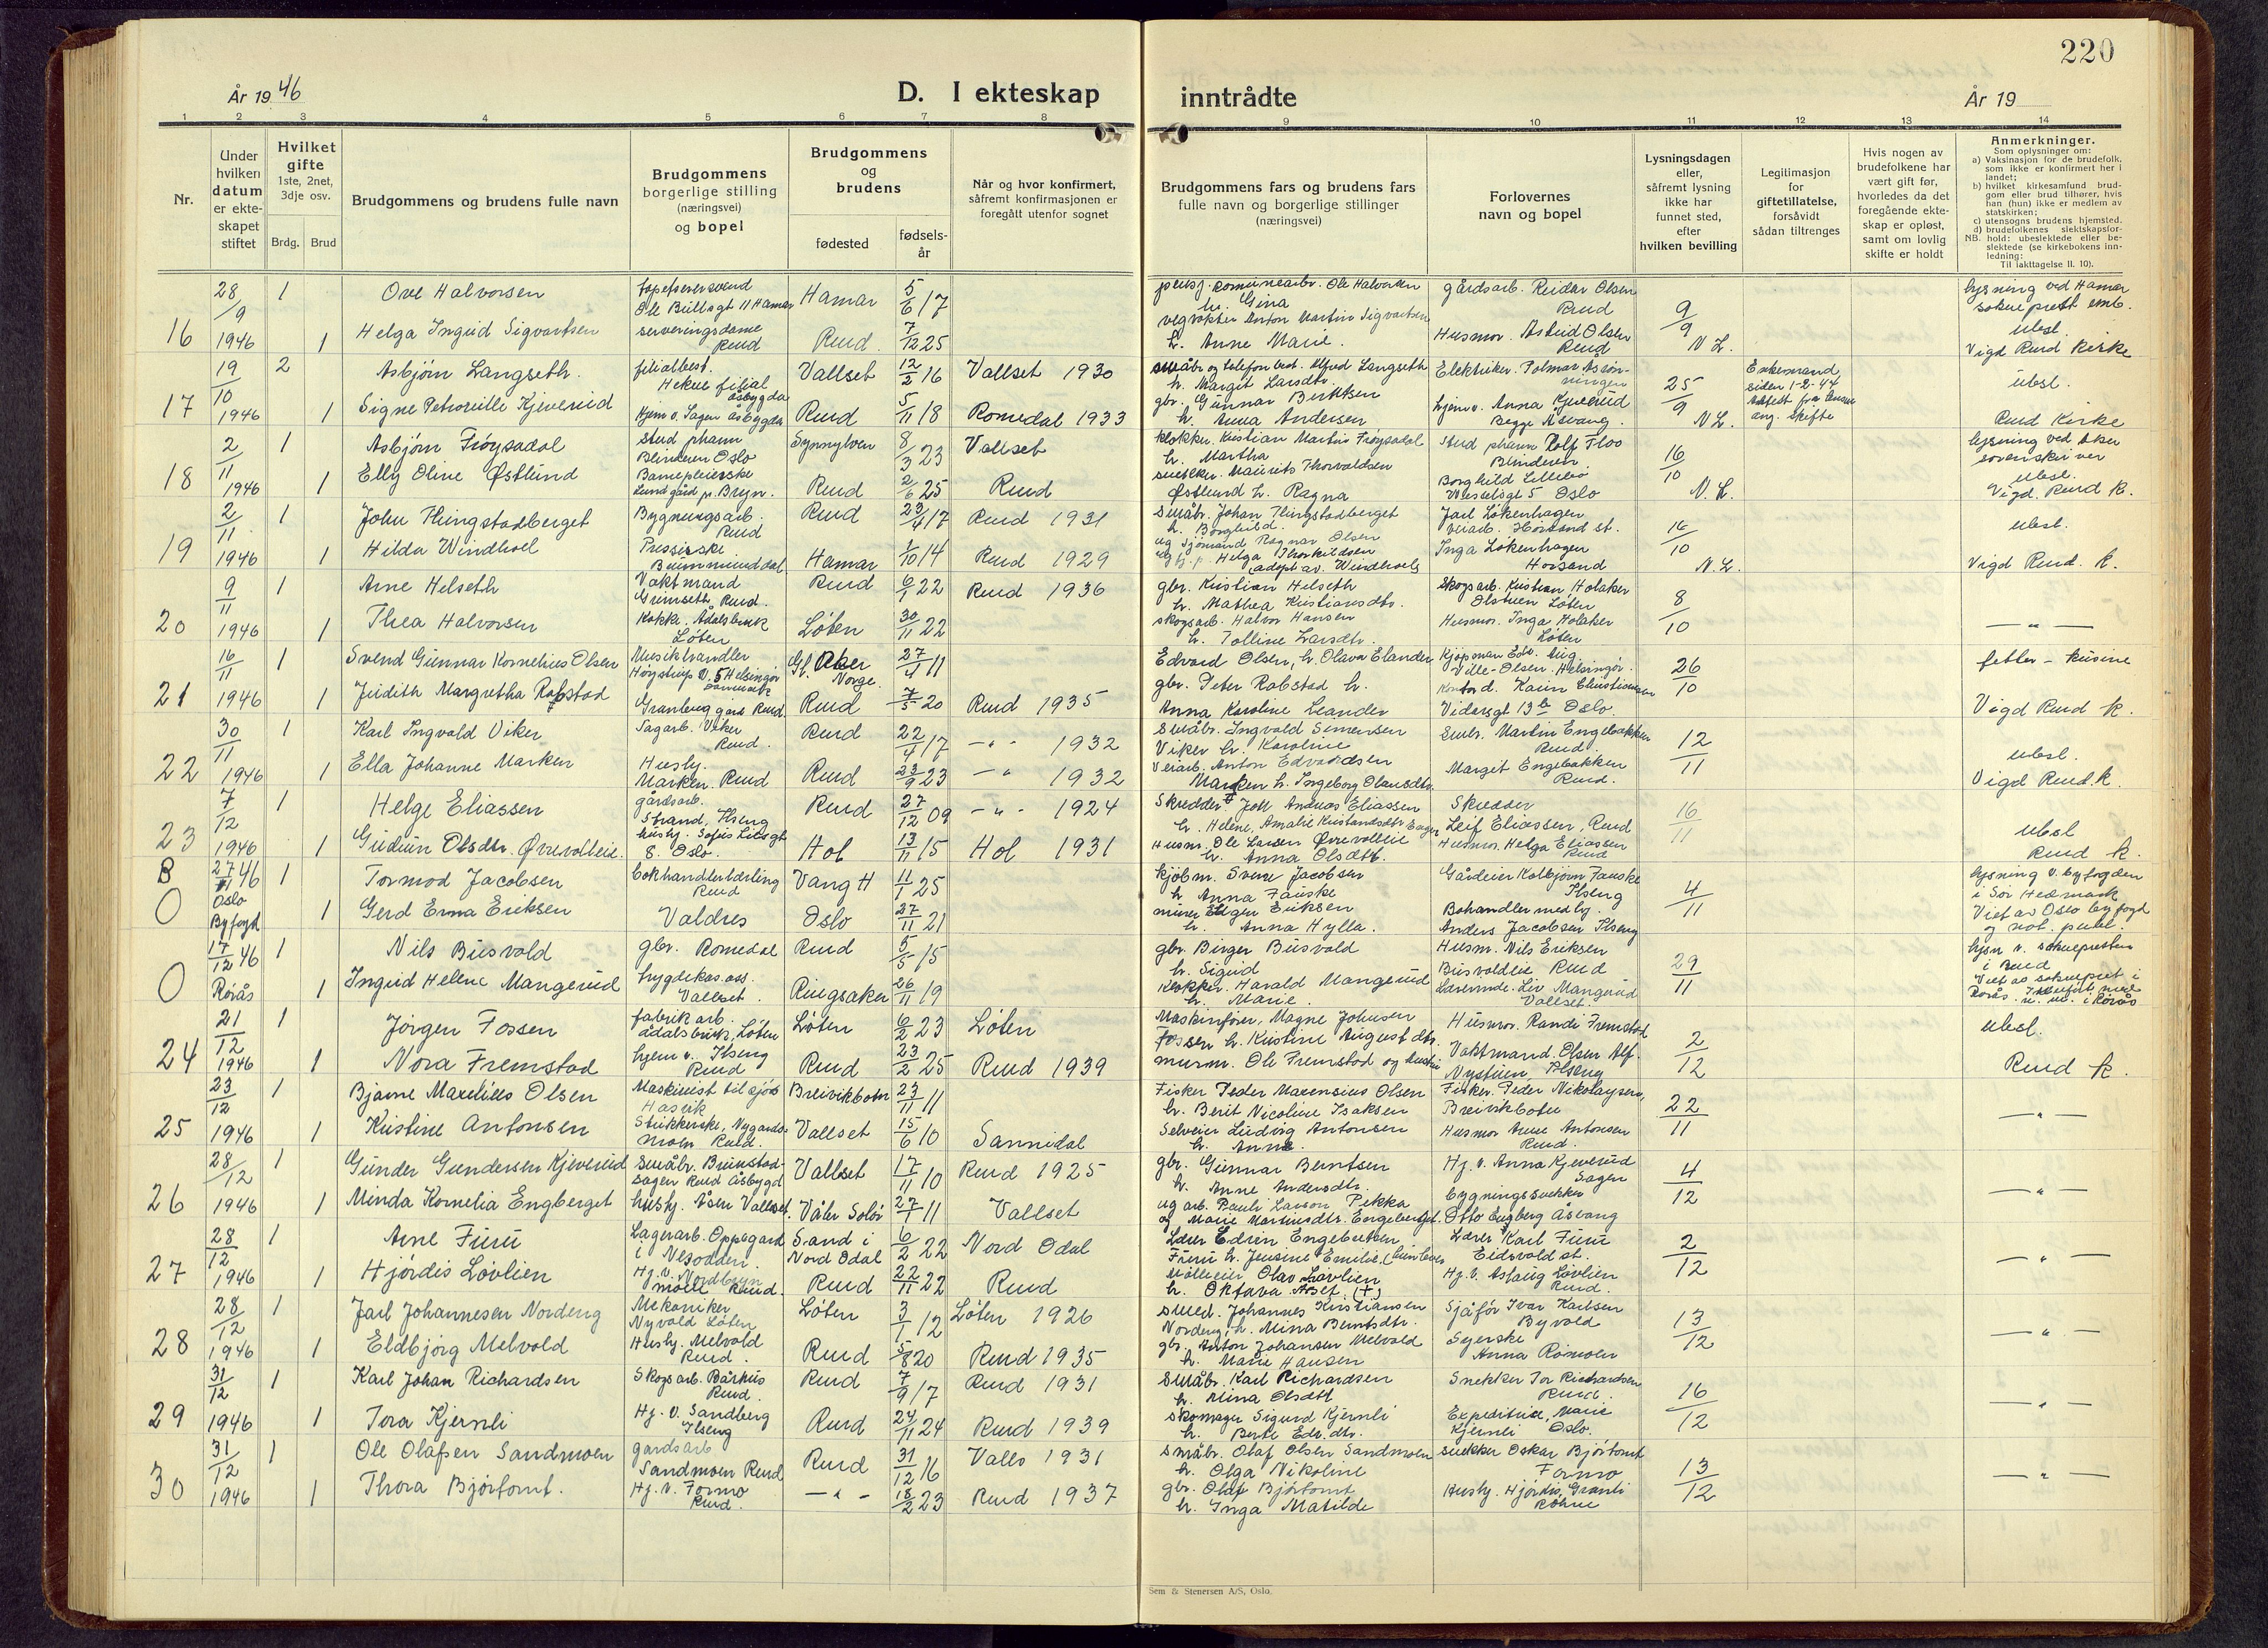 220
År 19 46
D. I ekteskap inntrådte
År 19
1 2 3 4 5 6 7 8 9 10 11 12 13 14
Nr.
Under
hvilken
datum
er ekte-
skapet
stiftet
Hvilket
gifte
1ste, 2net,
3dje osv.
Brdg. Brud
Brudgommens og brudens fulle navn
Brudgommens
borgerlige stilling
(næringsvei)
og bopel
Brudgommens
og
brudens
fødested
fødsels-
år
Når og hvor konfirmert,
såfremt konfirmasjonen er
foregått utenfor sognet
Brudgommens fars og brudens fars
fulle navn og borgerlige stillinger
(næringsvei)
Forlovernes
navn og bopel
Lysningsdagen
eller,
såfremt lysning
ikke har
funnet sted,
efter
hvilken bevilling
Legitimasjon
for
giftetillatelse,
forsåvidt
sådan tiltrenges
Hvis nogen av
brudefolkene har
vært gift før,
hvorledes da det
foregående ekte-
skap er opløst,
samt om lovlig
skifte er holdt
Anmerkninger.
Som oplysninger om:
a) Vaksinasjon for de brudefolk,
som ikke er konfirmert her i
landet;
b) hvilket kirkesamfund brud-
gom eller brud tilhører, hvis
han (hun) ikke er medlem av
statskirken;
c) utensogns brudens hjemsted.
d) brudefolkenes slektskapsfor-
hold: ubeslektede eller be-
slektede (se kirkebokens inn-
ledning:
NB. Til iakttagelse II. 10).
16 28/9 1946 1 Ove Halvorsen Ole Bullsgt 11 Hamar Hamar 5/6 17 Ole Halvorsen h. Gina gårdsarb. Reidar Olsen Rud 9/9 N L. lysning ved Hamar sokneprest emb.
1 Helga Ingrid Sigvartsen serveringsdame Rud Rud 7/12 25 vegvokter Anton Martin Sigvartsen h. Anne Marie. Husmor. Astrid Olsen Rud ubesl. Vigd Rud Kirke
17 19/10 1946 2 Asbjørn Langseth. filialbest. Åsbygda Vallset 12/2 16 Vallset 1930 småbr og telefonbest. Alfred Langseth h. Margit Larsdtr. Elektriker. 25/9 N L. Enkemand siden 1-2-44 ang. skifte ubesl.
1 Signe Petronille Kjeverud hjem v. Sagen Åsbygda Rud 5/11 18 Romedal 1933 gbr. Gunnar h. Anna Andersen hjemv. Anna Kjeverud Begge Åsvang. Rud Kirke
18 2/11 1946 1 Asbjørn Frøysadal Stud pharm Blindern Oslo Synnylven 8/3 23 Vallset Klokker. Kristian Martin Frøysadal h. Martha Stud pharm Rolf Floo Blindern 16/10 N. L. lysning ved Aker sorenskriver
1 Elly Oline Østlund Barnepleierske Lundgård p. Bryn. Rud 2/6 25 Rud snekker. Maurits Thorvaldsen Østlund h. Ragna Borghild Lillebo Wesselsgt 5 Oslo ubesl. Vigd. Rud k.
19 2/11 1946 1 John Flingstadberget Bygningsarb. Rud Rud 23/4 17 Rud 1931 Småbr. Johan Flingstadberget h. Borghild. Jarl Løkenhagen Veiarb. Horsand st. 16/10 N. L. ubesl.
1 Hilda Windhoel Presserske Brummunddal Hamar 1/10 14 Rud 1929 ug Sjømand Ragnar Olsen Helga Thorkildsen adopt av. Windhoels Inga Løkenhagen Horsand Vigd Rud. k.
20 9/11 1946 1 Arne Helseth Vaktmand Grimseth Rud. Rud 6/1 22 Rud 1936 gbr. Kristian Helseth h. Mathea Kristiansdtr. Skogsarb. Kristian Holaker Olstuen Løten 8/10
1 Thea Halvorsen Kokke. Ådalsbruk Løten Løten 30/11 22 skogsarb. Halvor Hansen h. Tolline Larsdtr. Husmor. Inga Holaker Løten — " —
21 16/11 1946 1 Svend Gunnar Kornelius Olsen Musikhandler Helsingør Danmark Gl. Aker Norge. 27/4 11 Edvard Olsen, h. Olava Elander Kjøpman Edv. Aug. Ville-Olsen. Helsingør. 26/10 fetter - kusine
1 Judith Margretha Rabstad Granberg gård Rud. Rud 7/5 20 Rud 1935 gbr. Peter Rabstad h. Anna Karoline Leander Kontord. Karin Christiansen Vidarsgt 13b Oslo. Vigd Rud k.
22 30/11 1946 1 Karl Ingvald Viker Sagarb. Viker Rud. Rud 22/4 17 — " — 1932 Småbr. Ingvald Simensen Viker h. Karoline Martin Engebakken Rud. 12/11 ubesl.
1 Ella Johanne Marken Husbj. Marken. Rud Rud 23/9 23 — " — 1932 Veiarb. Anton Edvardsen Marken h. Ingeborg Olausdtr. Margit Engebakken Rud. Vigd Rud. k.
23 7/12 1946 1 Helge Eliassen gårdsarb. Strand, Ilseng Rud 27/12 09 — " — 1924 Skredder Joh Andreas Eliassen h. Helene, Amalie Kristiansdtr Skredder Leif Eliassen, Rud 16/11 ubesl
1 Gudrun Olsdtr. Øvrevolleie. husbj. Sofies Liesgt 8. Oslo. Hol 13/11 15 Hol 1931 Husm. Ole Larsen Øvrevolleie h. Anna Olsdtr. Husmor. Helga Eliassen Rud Rud k.
B 27/11 46 Oslo Byfogd 1 Tormod Jacobsen bokhandlerlærling Rud Vang H 11/1 25 kjøbm. Svein Jacobsen h. Anna Fauske Gårdeier Kolbjørn Fauske Ilseng 4/11 lysning v. byfogden i Sør Hedmark
O 1 Gerd Erna Eriksen Valdres Oslo 27/11 21 murer Eriksen h. Anna Hylla. Anders Jacobsen Ilseng Viet av Oslo byfogd og not. publ.
17/12 46 Røros 1 Nils Busvold gbr. Romedal Rud 5/5 15 gbr. Birger Busvold h. Sigrid Husm. Nils Eriksen Busvoldeie Rud 29/11 lysn v. sokneprestn i Rud
O 1 Ingrid Helene Mangerud trygdekas.ass. Vallset. Ringsaker 26/11 19 Klokker. Harald Mangerud h. Marie. Liv Mangerud Vallset. Viet av soknepret i Røros.
24 21/12 1946 1 Jörgen Fossen fabrikarb. Ådalsbruk, Løten Løten 6/2 23 Løten Maskinfører, Magne Johnsen Fossen h. Kristine Augustdtr. Husmor. Randi Fremstad 2/12 ubesl.
1 Nora Fremstad hjem v. Ilseng Rud Rud 23/2 25 Rud 1939 murm. Ole Fremstad Vaktmand. Olsen Alf. Nystuen, Ilseng Rud k.
25 23/12 1946 1 Bjarne Marelius Olsen Maskinist til sjøs Hasvik Breivikbotn 23/11 11 Fisker Peder Marensius Olsen h. Berit Nicoline Isaksen Fisker. Peder Nikolaysen, Breivikbotn 22/11 — " —
1 Kristine Antonsen Strikkerske, Nygards-moen Rud. Vallset 15/6 10 Sannidal Selveier Ludvig Antonsen h. Anne Husmor Anne Antonsen Rud.
26 28/12 1946 1 Gunder Gundersen Kjeverud Småbr. Brunstad-sagen Rud Åsbygd Vallset 17/11 10 Rud 1925 gbr. Gunnar Berntsen h. Anne Andersdtr. Hj. v. Anna Kjeverud Sagen 4/12 — " —
1 Minda Kornelia Engberget husbj. Åsen Vallset. Våler Solør 27/7 11 Vallset ug arb. Pauli Larson Pekka og Marie Martinsdtr. Engeberget. bygningssnekker Otto Engberg Åsvang
27 28/12 1946 1 Arne Furu Lagerarb. Oppegård i Nesodden. Sand i Nord Odal 6/2 22 Nord Odal Lærer Edvin Engebretsen Furu h. Jensine Emilie Lærer Karl Furu Eidsvold st. 2/12 — " —
1 Hjørdis Løvlien Hj. v. Nordbryn mølle Rud. Rud 22/11 22 Rud Mølleeier Olav Løvlien h. Oktava Aaset. (+) Hj. v. Aslaug Løvlien Rud.
28 28/12 1946 1 Jarl Johannesen Nordeng Mekaniker Nyvold Løten Løten 3/1 12 Løten 1926 smed. Johannes Kristiansen Nordeng, h. Mina Berntsdtr. Sjåfør Ivar Karlsen Byvold 13/12 — " —
1 Eldbjørg Melvold Husbj. Melvold Rud. Rud 5/8 20 Rud 1935 gbr. Anton Johansen Melvold h. Marie Hansen Syerske Anna Romoen
29 31/12 1946 1 Karl Johan Richardsen Skogsarb. Bårhus Rud. Rud 7/9 17 Rud 1931 Småbr. Karl Richardsen h. Mina Olsdtr Snekker Tor Richardsen Rud. 16/12 — " —
1 Tora Kjernli Hj. v. Sandberg Ilseng Rud 24/11 24 Rud 1939 skomager Sigurd Kjernli h. Berte Edv.dtr. Expeditrice, Marie Kjernli Oslo.
30 31/12 1946 1 Ole Olafsen Sandmoen gardsarb Sandmoen Rud Rud 31/12 16 Valle 1931 småbr. Olaf Olsen Sandmoen h. Olga Nikoline snekker Oskar Bjørtomt Formo 13/12 — " —
1 Thora Bjørtomt. Hj. v. Formo Rud. — " — 18/2 23 Rud 1937 gbr. Olaf Bjørtomt h. Inga Matilde Husbj. Hjørdis, Granli Rohne
Sem & Stenersen A/S, Oslo.